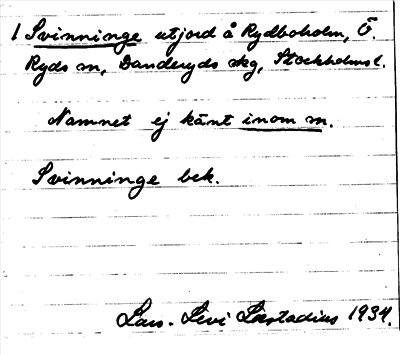 1 Svinninge utjord å Rydboholm, Ö.
Ryds sn, Danderyds skg, Stockholms l.
Namnet ej känt inom sn.
Svinninge bek.
Lars-Levi Læstadius 1934.